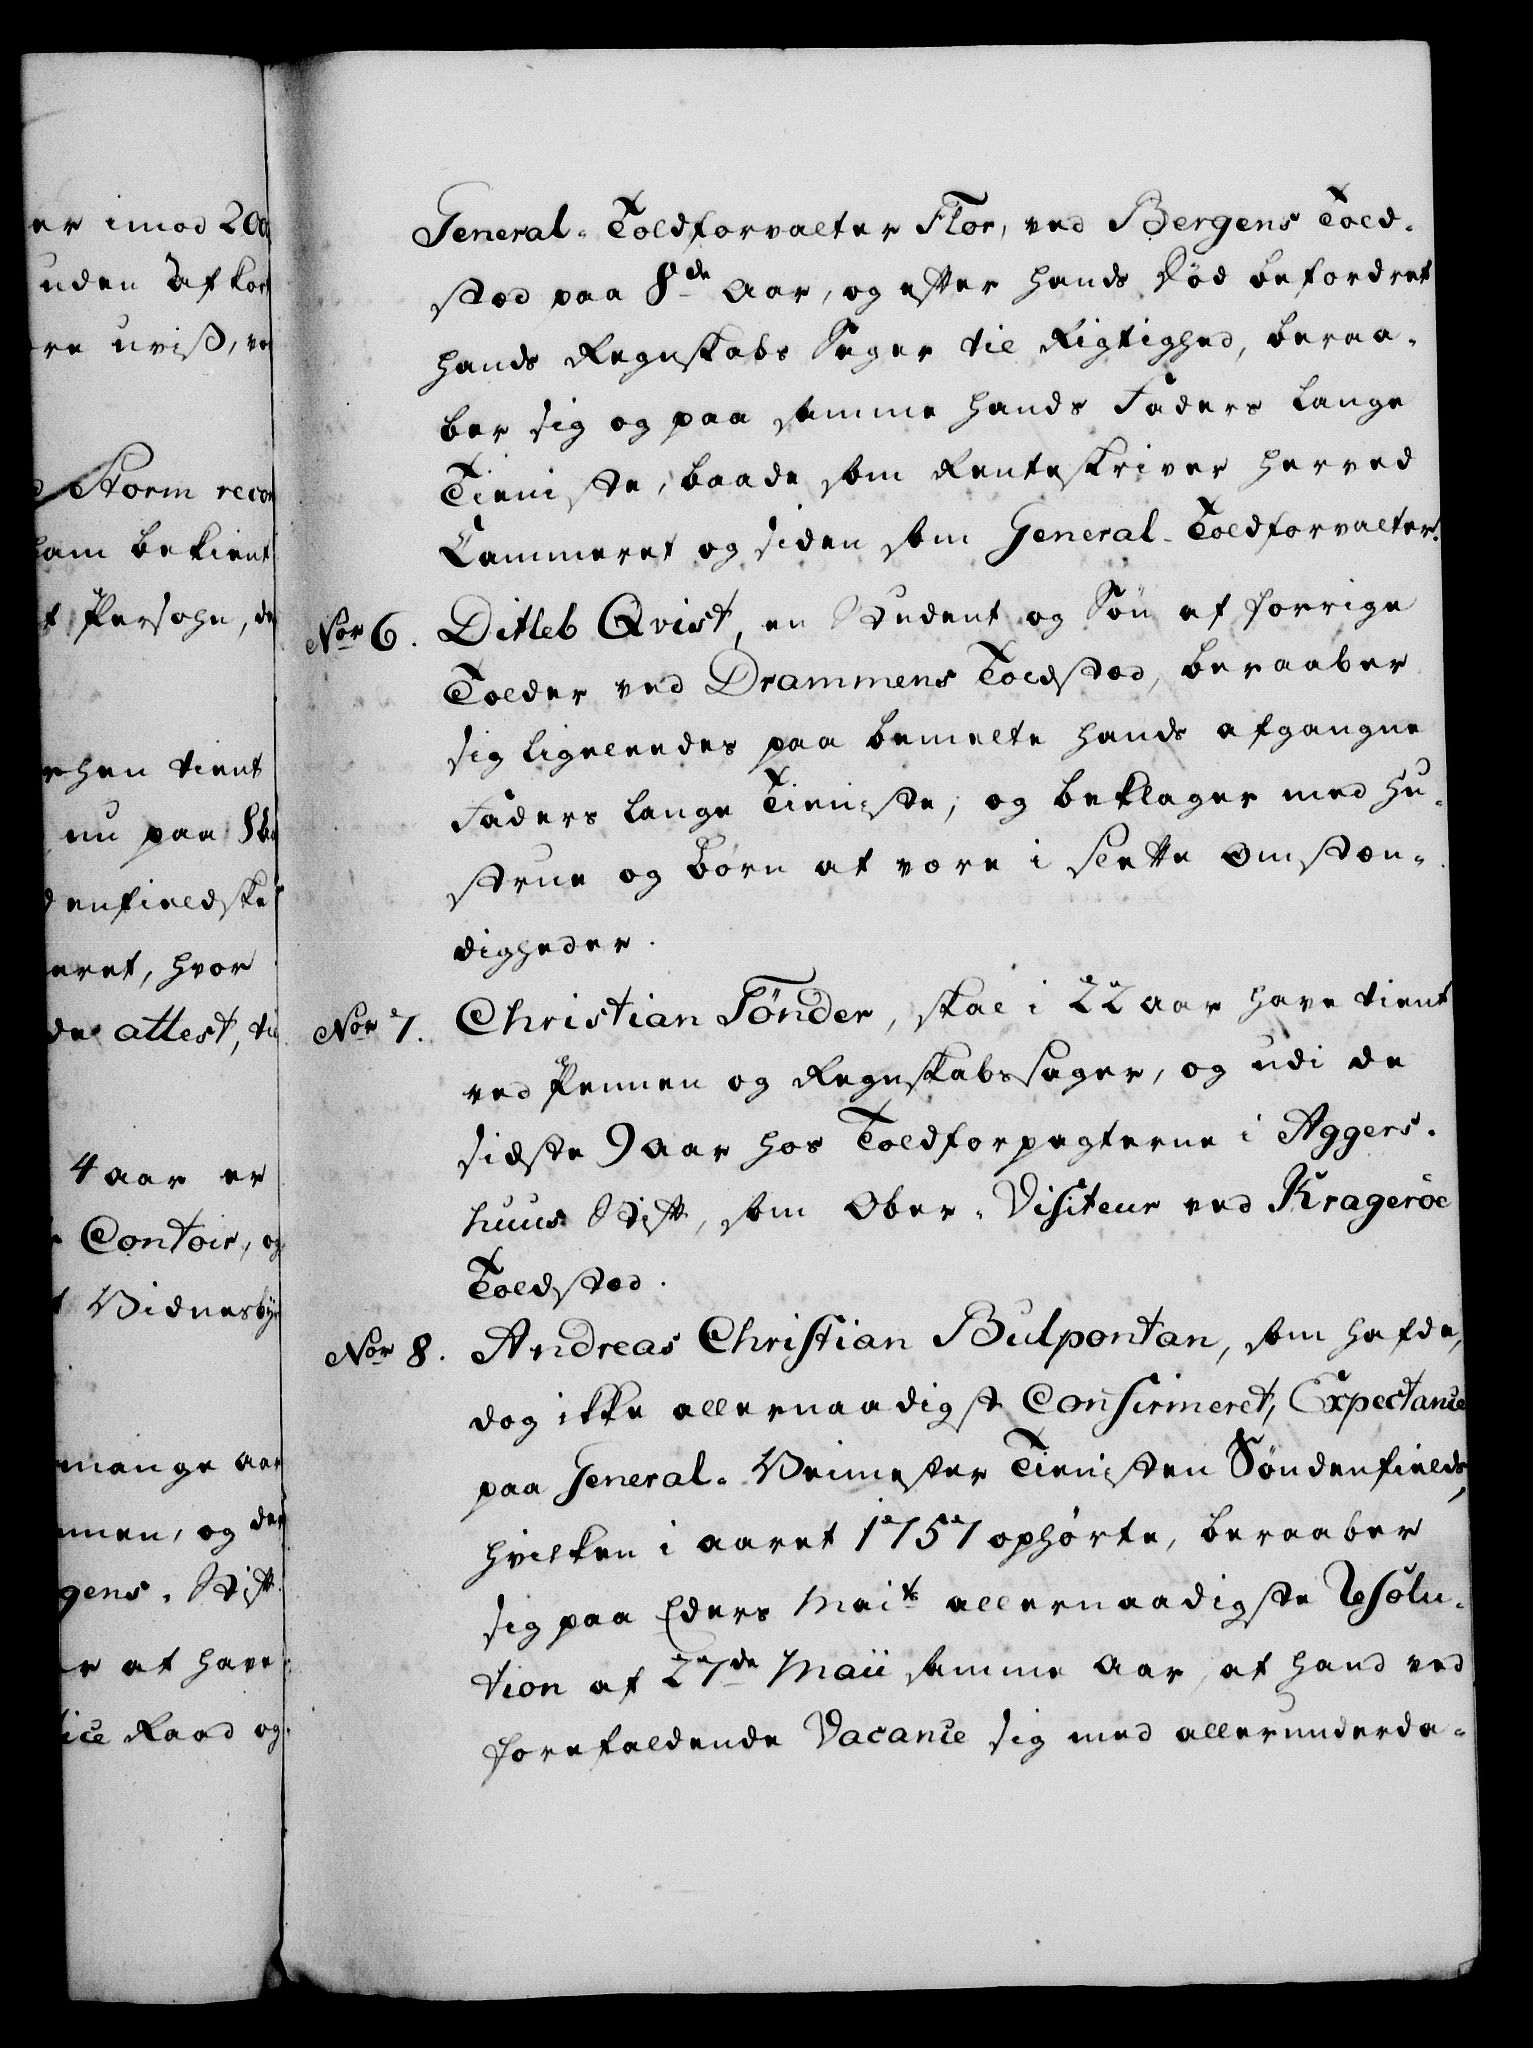 er imod 200
uden Afkor
re uviß, ve
d Storm reco
ham bekient
t Persohn, de
rhen tient
nu paa 8de
denfieldske
eret, hvor
de attest, ti
4 aar er
Contoir, og
t Vidnesby
mange aar
nnen, og der
gens. Stift
er at have
tice Raad og
General-Toldforvalter Flor, ved Bergens Told-
stæd paa 8de Aar, og efter hands Død befordret
hands Regnskabs Sager til Rigtighed, beraa-
ber sig og paa samme hands Faders lange
Tieniste, baade som Renteskriver herved
Cammeret og siden som General-Toldforvalter.
Nor 6. Ditleb Qvist, en Student og Søn af forrige
Tolder ved Drammens Toldstæd, beraaber
sig ligeleedes paa bemelte hands afgangne
Faders lange Tieniste, og beklager med Hu-
strue og Børn at være i slette Omstæn-
digheder.
Nor 7. Christian Tönder, skal i 22 aar have tient
ved Pennen og Regnskabssager, og udi de
sidste 9 aar hos Toldforpagterne i Aggers-
huus Stift, som Ober-Visiteur ved Krageröe
Toldstæd.
Nor 8. Andreas Christian Bulpontan, som hafde,
dog ikke allernaadigst Confirmeret, Expectance
paa General-Veimester Tienisten Søndenfields,
hvilken i aaret 1757 ophørte, beraaber
sig paa Eders Maits allernaadigste Resolu-
tion af 27de Maii samme Aar, at hand ved
forefaldende Vacance sig med allerunderda-